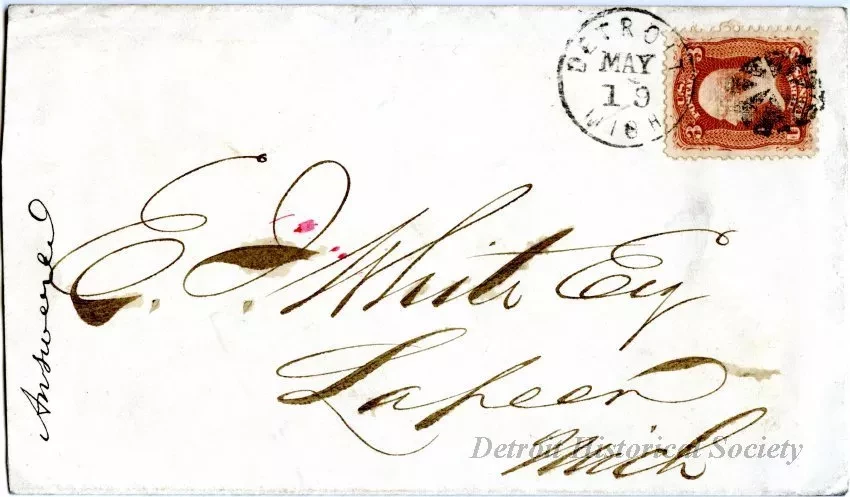 DETROIT
MAY
19
MICH
3 3
Answered
E. J. White Esq
Lapeer
Mich
Detroit Historical Society